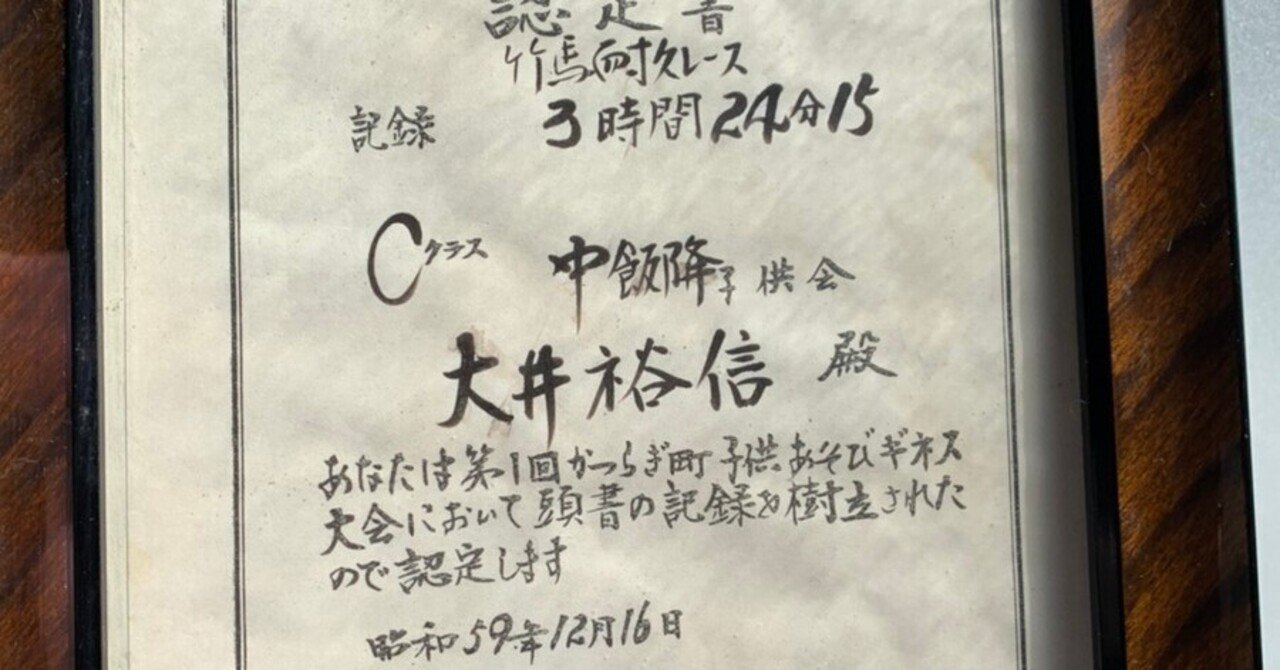 認定書
竹馬耐久レース
記録 3時間24分15
Cクラス 中飯降子供会
大井裕信 殿
あなたは第1回かつらぎ町子供あそびギネス
大会において頭書の記録を樹立された
ので認定します
昭和59年12月16日